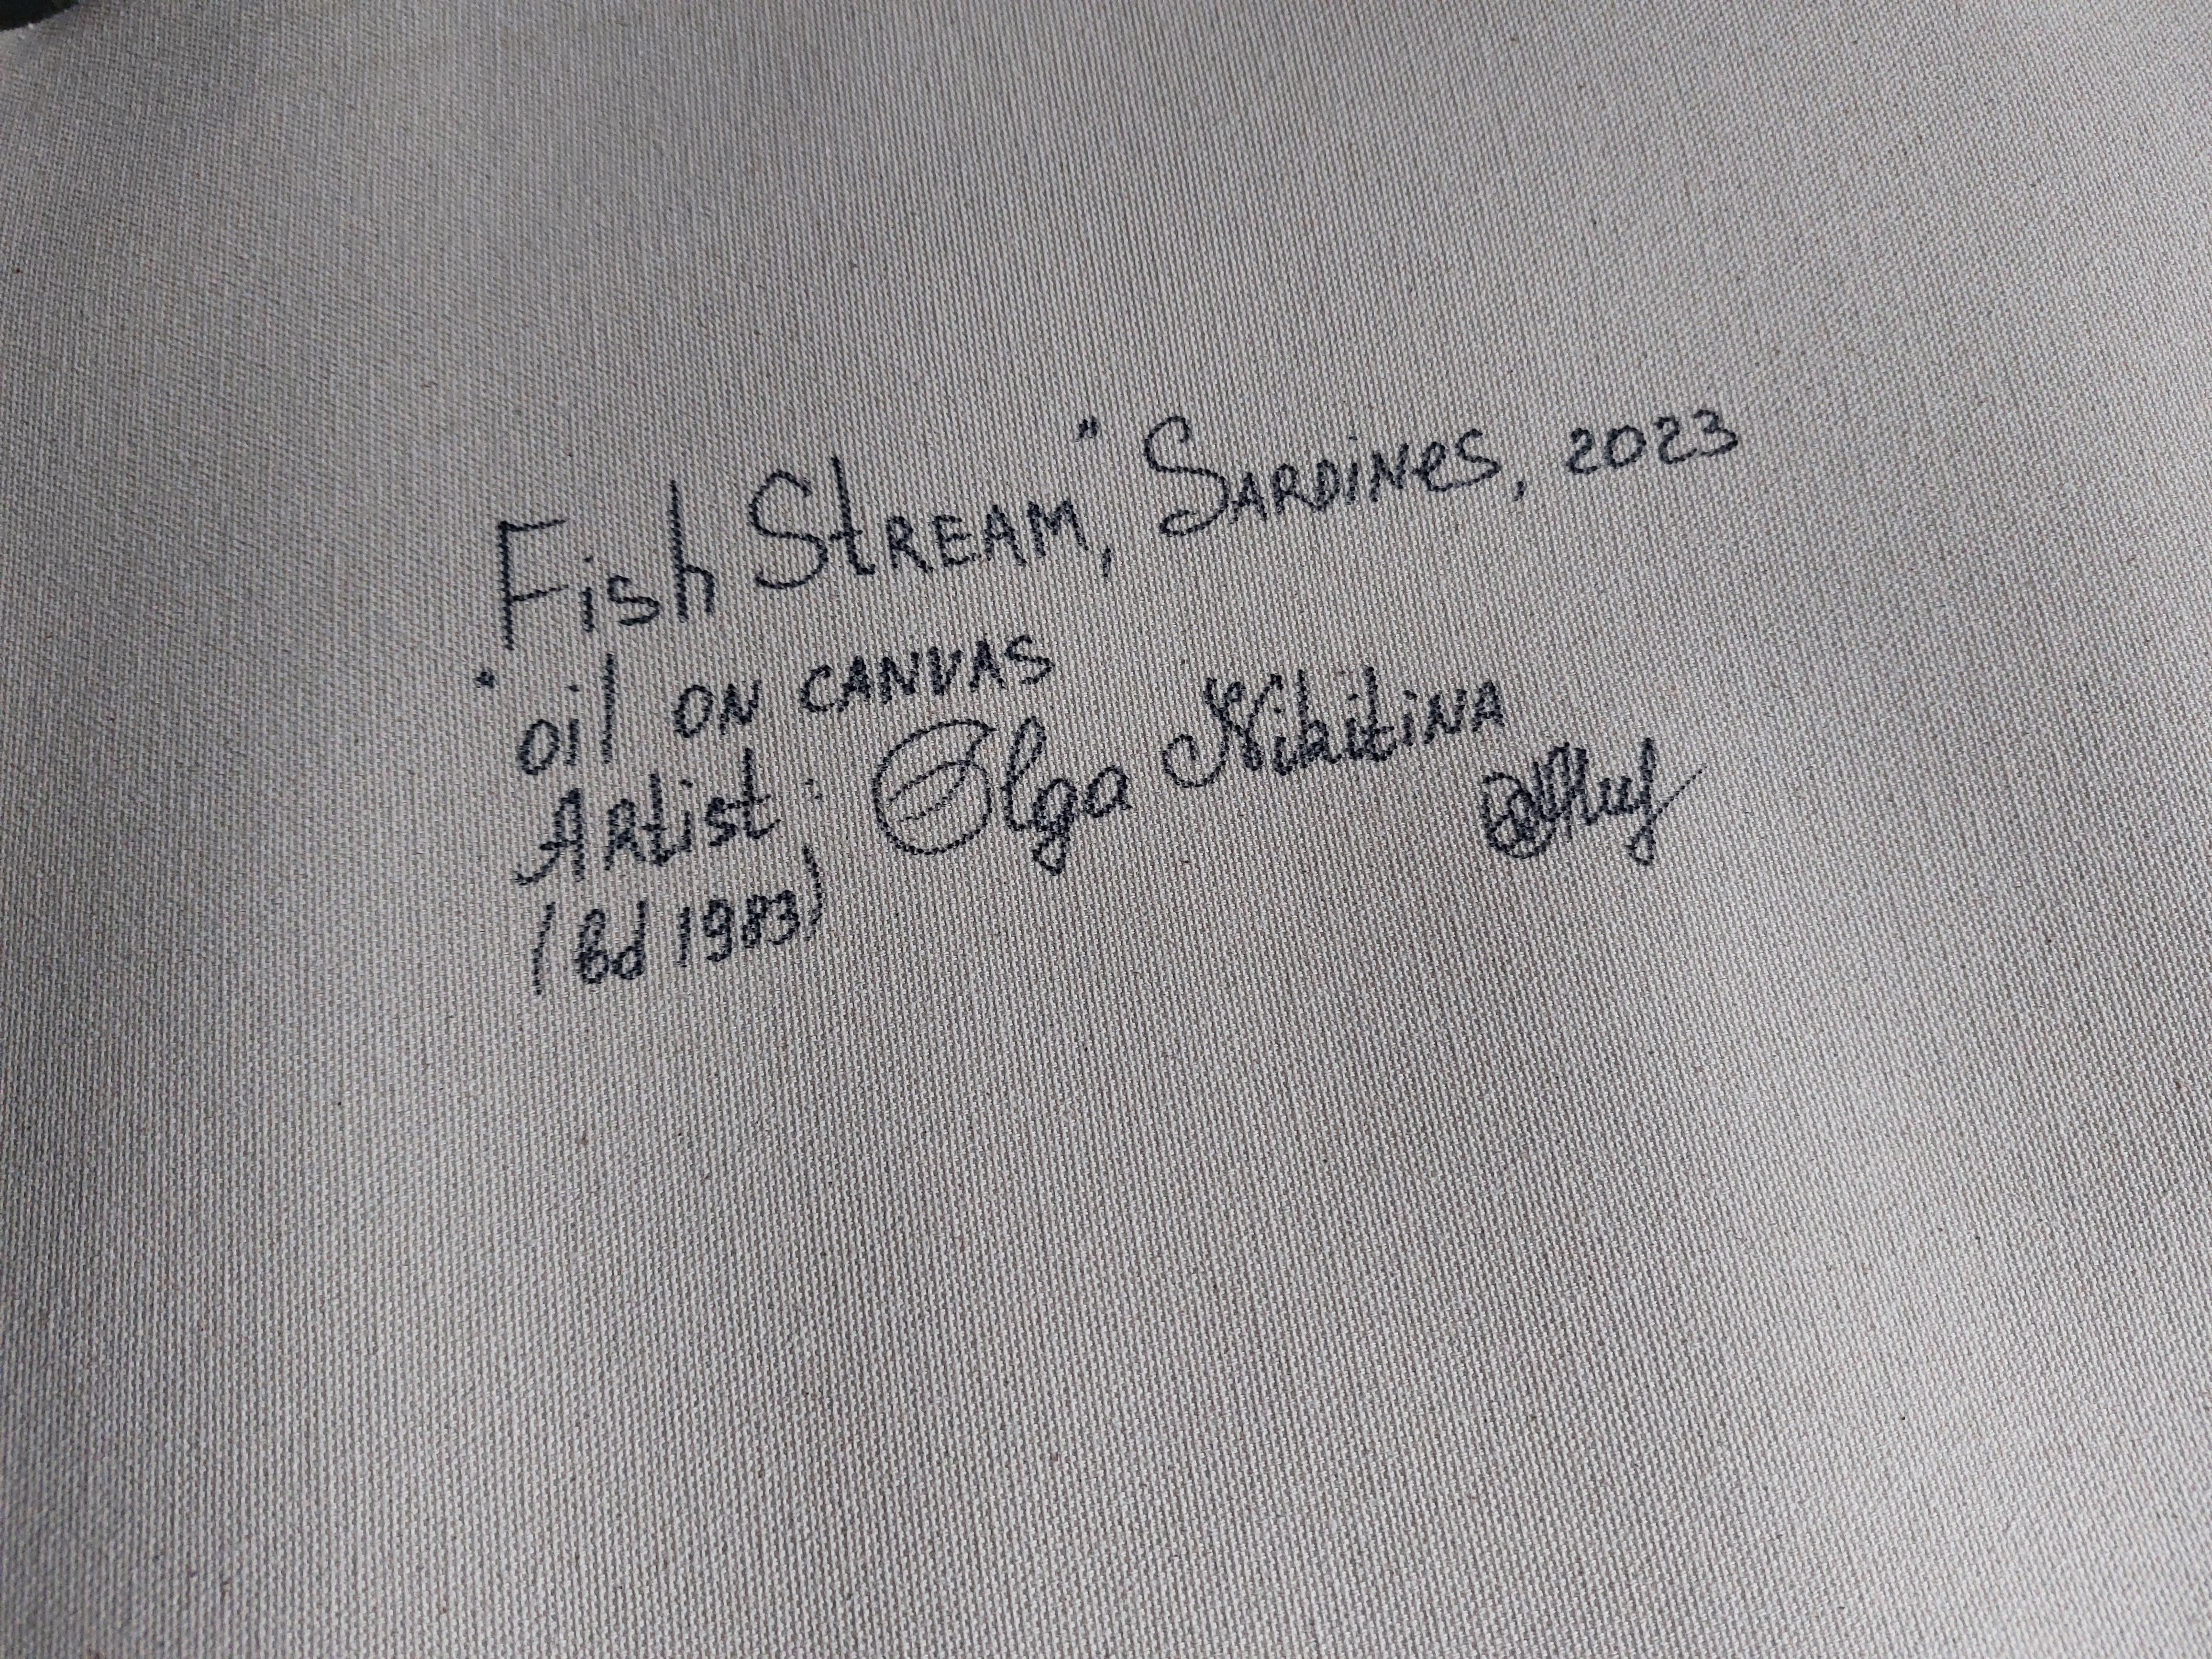 "Fish Stream," Sardines, 2023
oil on canvas
Artist: Olga Nikitina
(bd 1983)